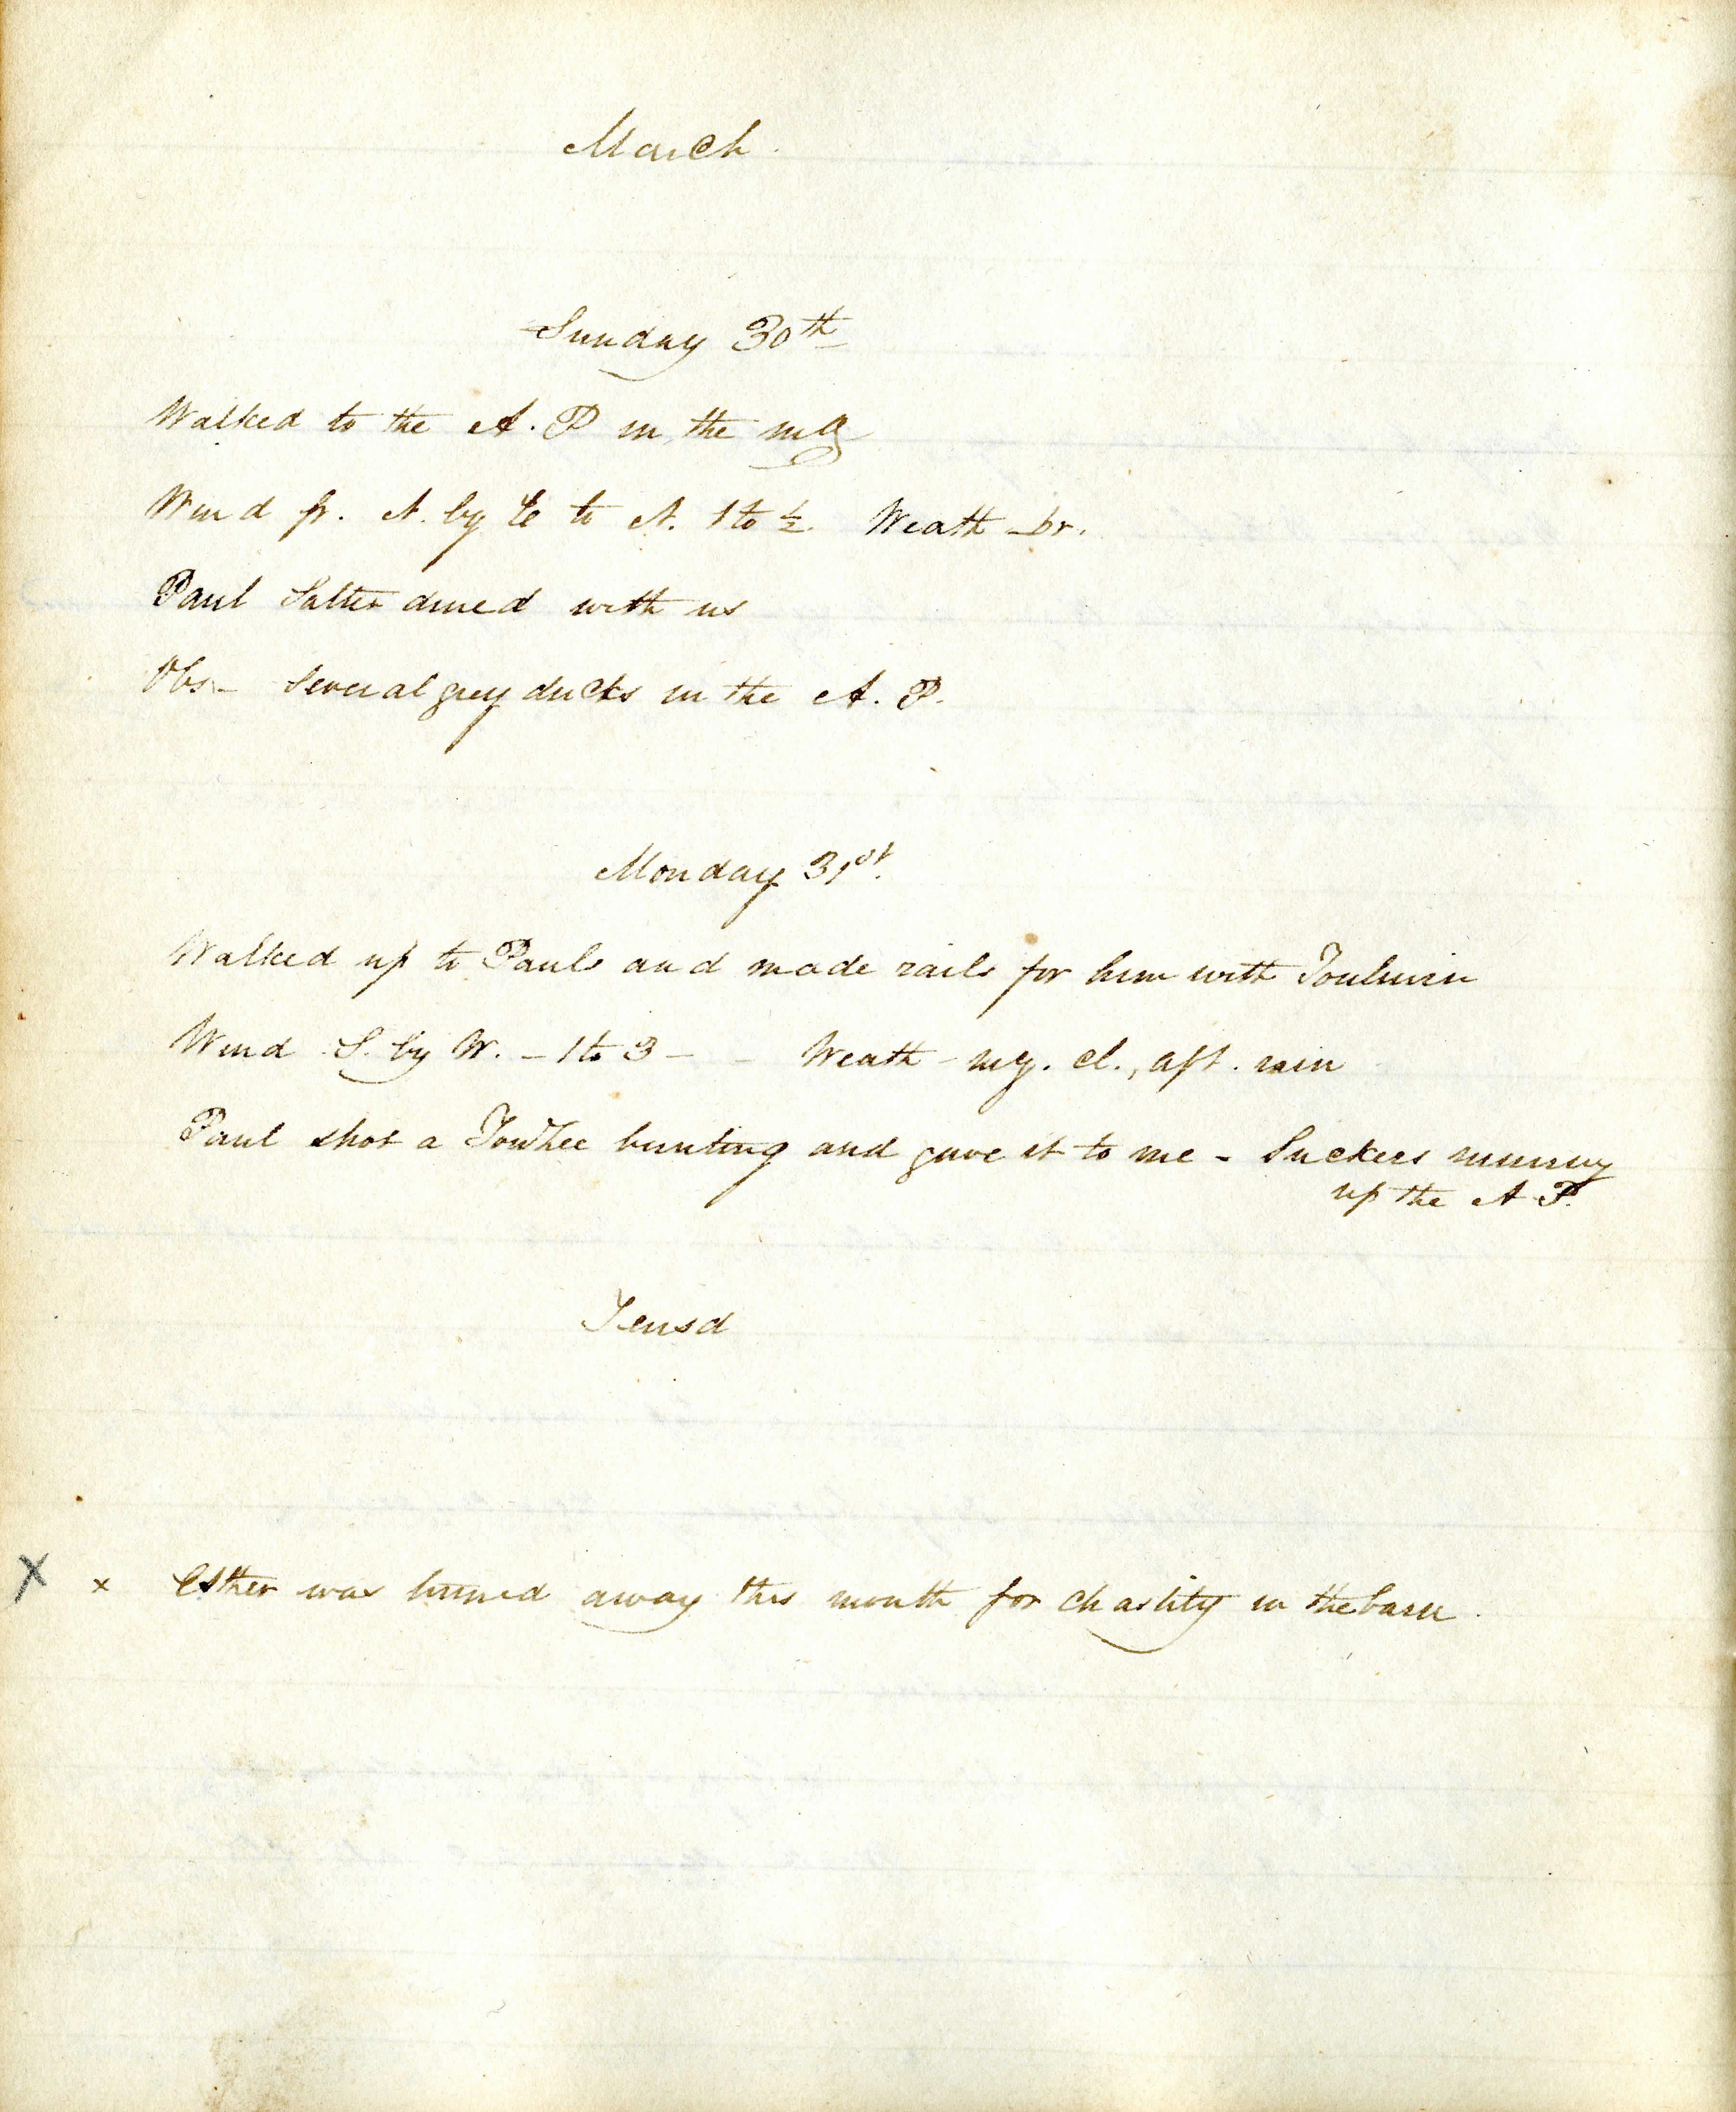 March.
Sunday 30th
Walked to the A. P in the mg
Wind fr. N. by E to N. 1 to ½. Weath - br.
Paul Salter dined with us
Obs - Several grey ducks in the A. P.
Monday 31st.
Walked up to Pauls and made rails for him with Toulmin
Wind S. by W. - 1 to 3 - - Weath - mg. cl., aft. rain
Paul shot a Towhee bunting and gave it to me - Suckers running
up the A P.
Teusd
X x Esther was turned away this month for chastity in the barn.